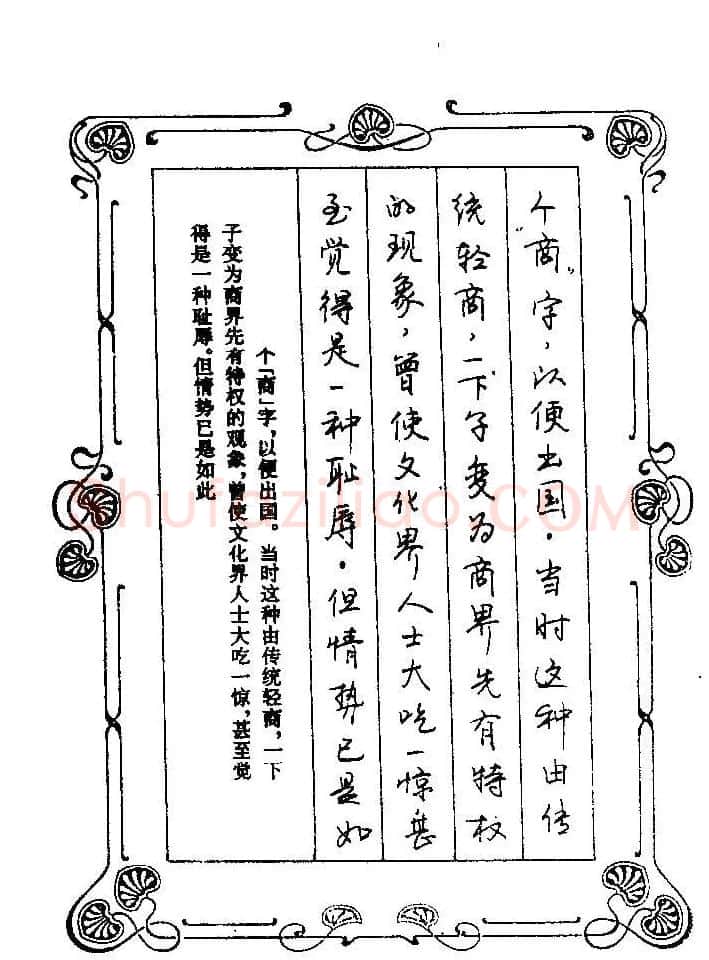 个“商”字，以便出国．当时这种由传
统轻商，一下子变为商界先有特权
的现象，曾使文化界人士大吃一惊甚
至觉得是一种耻辱．但情势已是如
个「商」字，以便出国。当时这种由传统轻商，一下
子变为商界先有特权的观象，曾使文化界人士大吃一惊，甚至觉
得是一种耻辱。但情势已是如此
Shufaziliao.COM